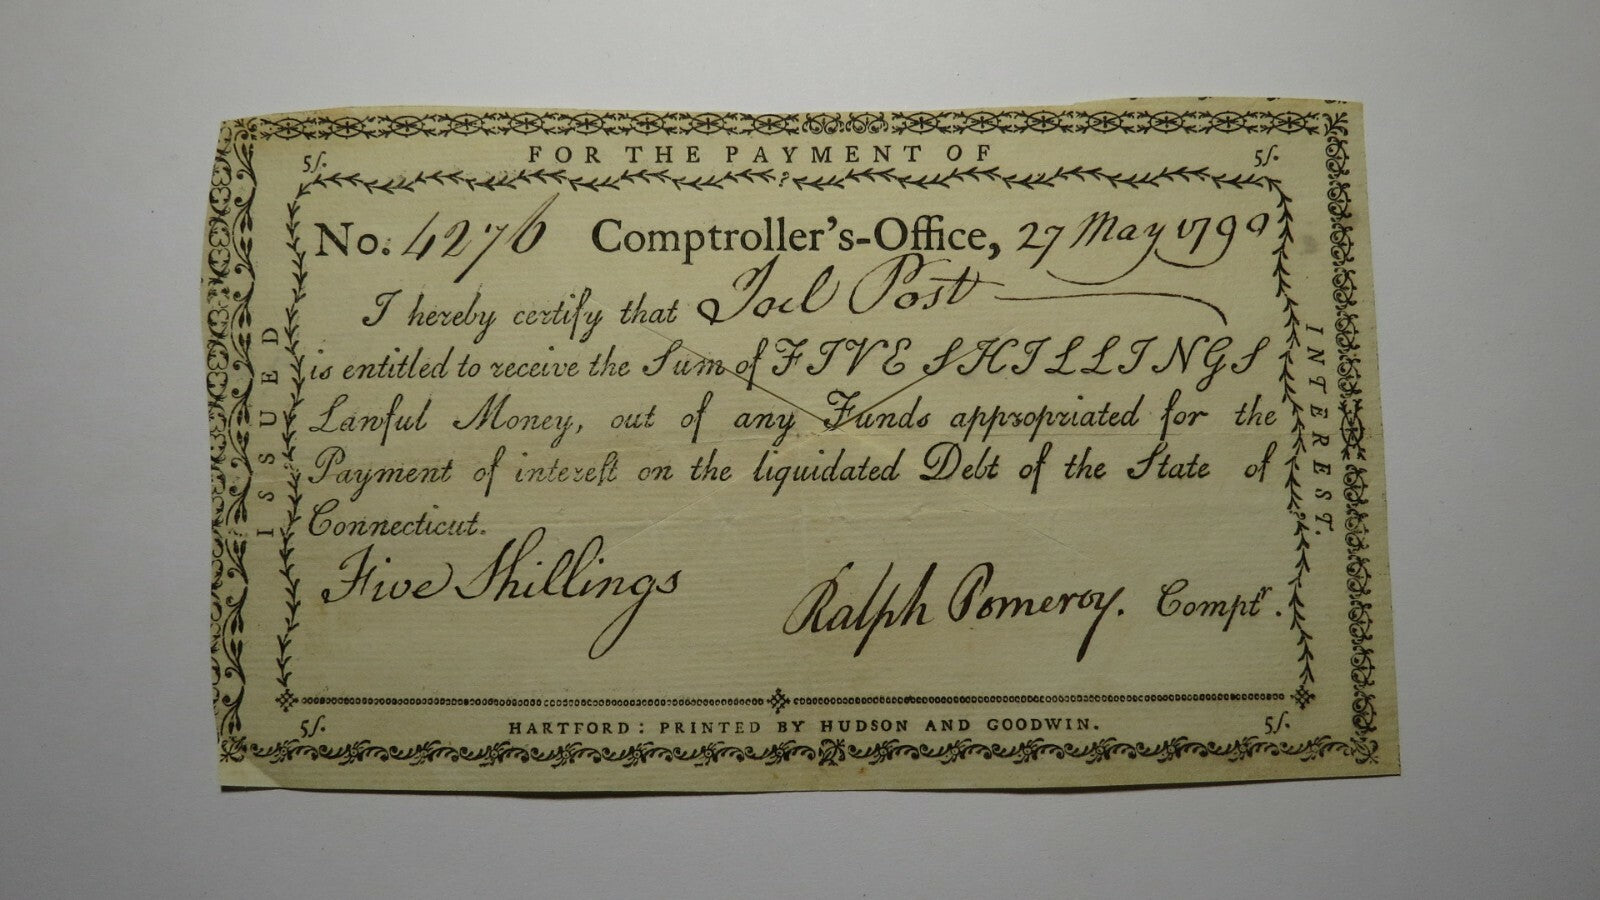 FOR THE PAYMENT OF
5/. 5/.
No. 4276 Comptroller's-Office, 27 May 1790
I hereby certify that Joel Post
is entitled to receive the Sum of FIVE SHILLINGS
Lawful Money, out of any Funds appropriated for the
Payment of interest on the liquidated Debt of the State of
Connecticut.
Five Shillings
Ralph Pomeroy. Comptr.
5/. 5/.
HARTFORD: PRINTED BY HUDSON AND GOODWIN.
ISSUED
INTEREST.